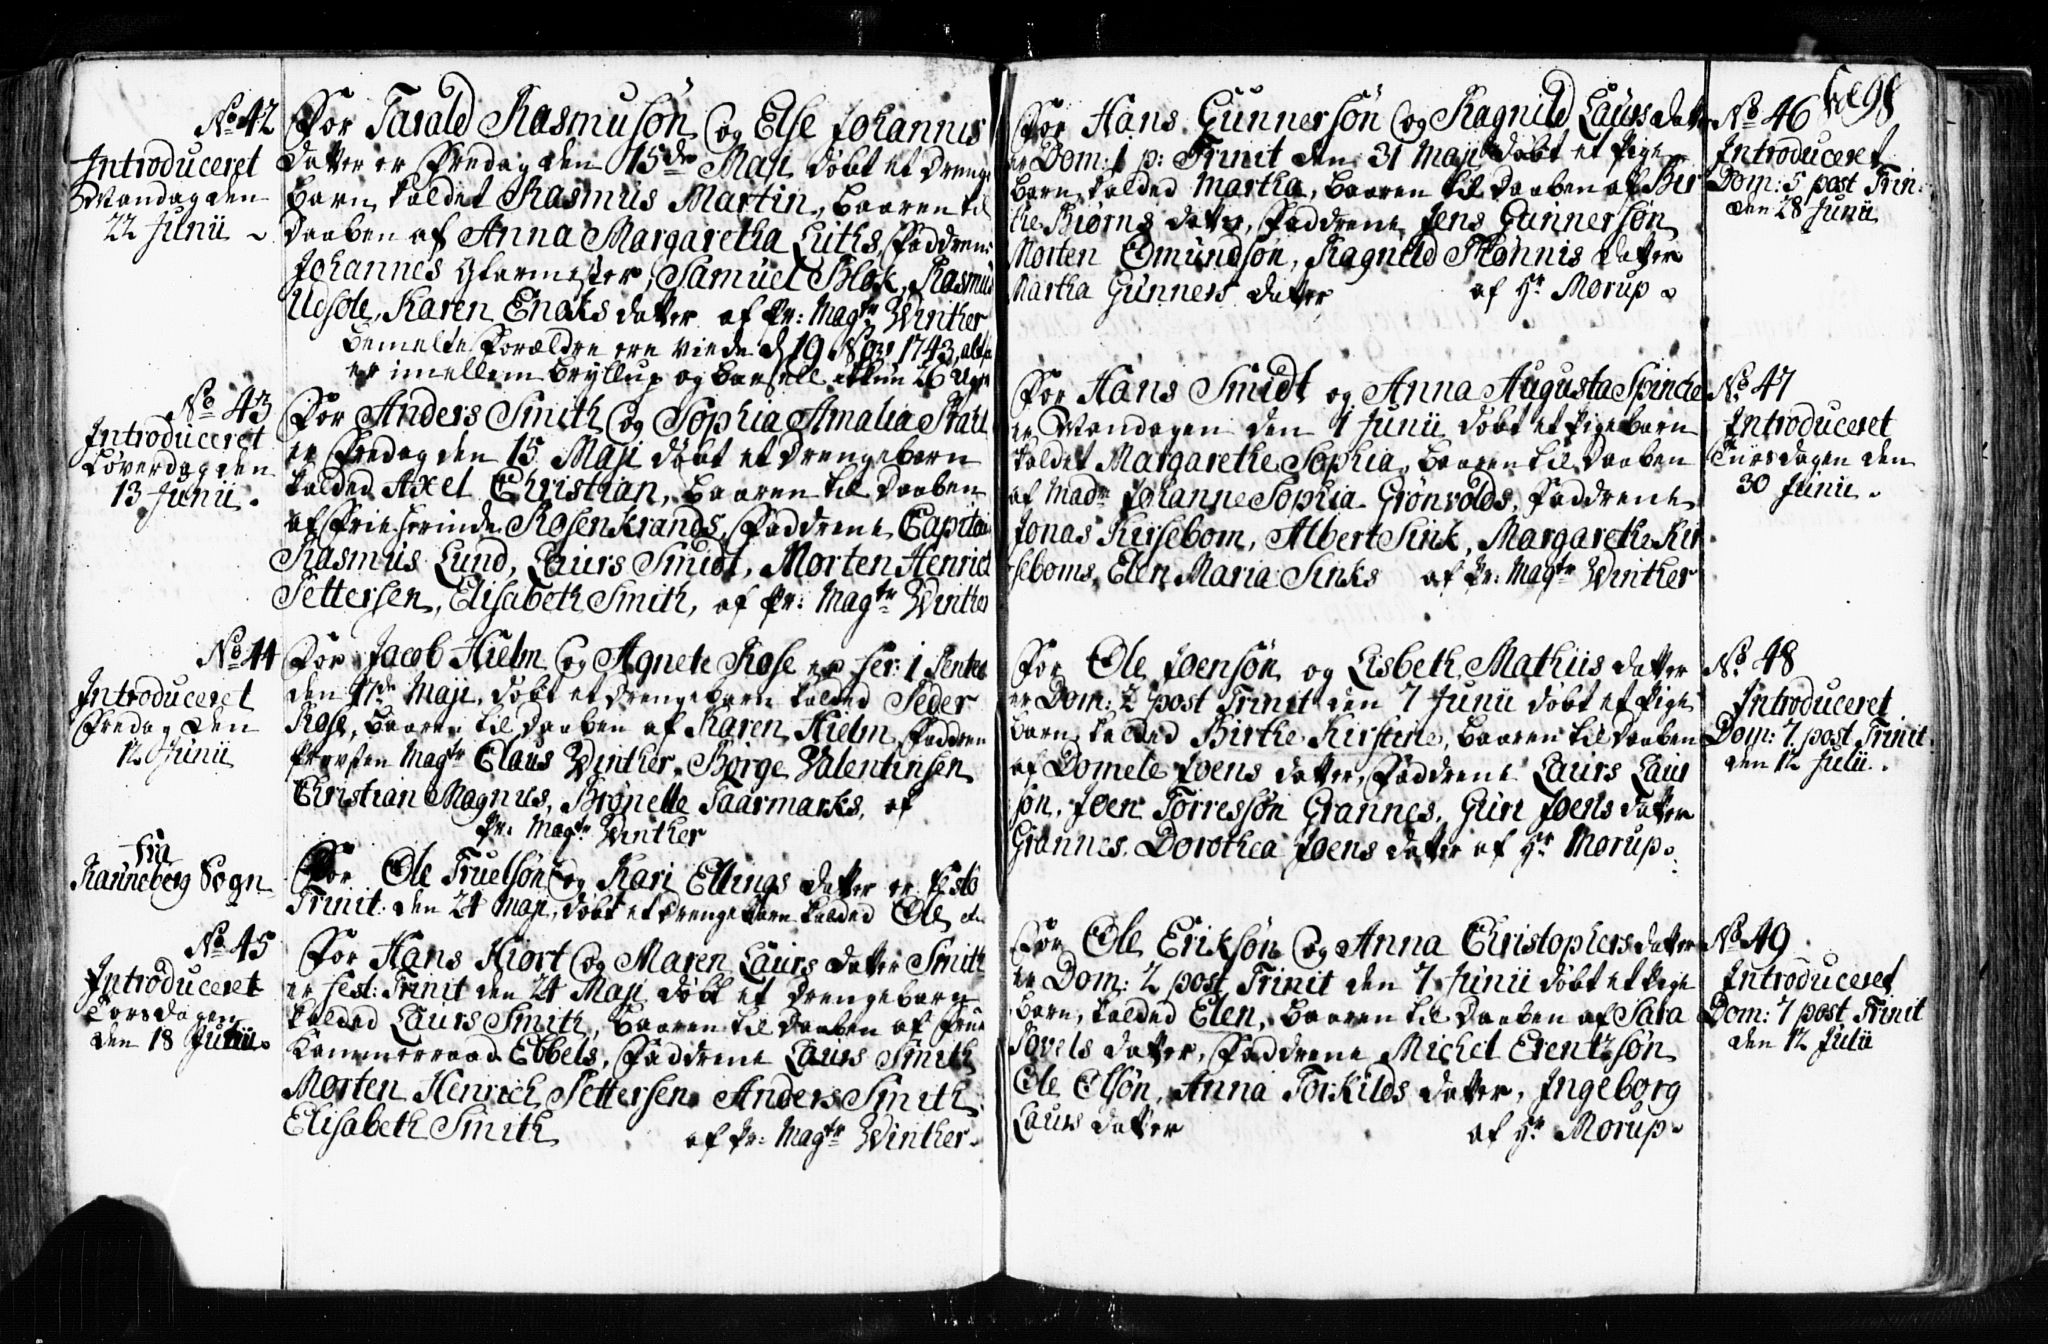 No 42
Introduceret
Mandag den
22 Junii
For Tarald Rasmusøn og Else Johannis
datter er Fredag den 15de Maji døbt et drenge
barn kaldet Rasmus Martin, baaren til
daaben af Anna Margaretha Luths, Faddrene
Johannes Glarmester, Samuel Blok, Rasmus
Udsole, Karen Enoks datter af Pr: Magtr Winther
bemelte Forældre ere viede d 19 Nov: 1743, altsaa
er imellem bryllup og barsell ikkun 26 Uger
No 43
Introduceret
Løverdag den
13 Junii.
For Anders Smith og Sophia Amalia
er Fredag den 15 Maji døbt et drengebarn
kalded Axel Christian, baaren til daaben
af Friherinde Rosenkrands, Faddrene Capitain
Rasmus Lund, Laurs Smidt, Morten Henrich
Pettersen, Elisabeth Smith, af Pr: Magtr Winther
No 44
Introduceret
Fredag den
12 Junii
For Jacob Hielm og Agnete Rose er Fer: 1 Pentec
den Maji, døbt et drengebarn kalded Peder
Rose, baaren til daaben af Karen Hielm, Faddren
Provsten Magtr Claus Winther, Børge Valentinsen
Christian Magnus, Brønelle Taarmarks, af
Pr: Magtr Winther
fra
Ranneberg Sogn
For Ole Truelsøn og Kari Ellings datter er Festo
Trinit. den 24 Maji, døbt et drengebarn kalded Ole etc
No 45
Introduceret
Torsdagen
den 18 Junii.
For Hans Hiort og Maren Laurs datter Smith
er Fest: Trinit den 24 Maji døbt et drengebarn
kalded Laurs Smith, baaren til daaben af Frue
Kammerraad Ebbels, Faddrene Laurs Smith
Morten Henrich Pettersen, Anders Smith
Elisabeth Smith af Pr: Magtr Winther.
For Hans Gunnersøn og Ragnild Laurs datter
er Dom: 1 p: Trinit den 31 Maji døbt et Pige
barn kalded Martha, baaren til daaben af Bir
the Biørns datter, Faddrene Jens Gunnersøn
Morten Edmundsøn, Ragnild datter
Martha Gunners datter af Hr Morup.
No 46
Introduceret
Dom: 5 post Trin:
den 28 Junii
For Hans Smidt og Anna Augusta Spincke
er Mandagen den 1 Junii døbt et Pigebarn
kaldet Margarethe Sophia, baaren til daaben
af Madme Johanne Sophia Grønvolds, Faddrene
Jonas Kirsebom, Albert Sink, Margarethe Kir
seboms, Elen Maria Sinks af Pr: Magtr Winther
No 47
Introduceret
Tiirsdagen den
30 Junii.
For Ole Joensøn og Lisbeth Mathiis datter
er Dom: 2 post Trinit den 7 Junii døbt et Pige
barn kalded Birthe Kirstine, baaren til daaben
af Domete Joens datter, Faddrene Laurs Laur
søn, Joen Torressøn Grannes, Guri Joens datter
Grannes, Dorothea Joens datter af Hr Morup.
No 48
Introduceret
Dom: 7 post Trinit
den 12 Julii.
For Ole Eriksøn og Anna Christophers datter
er Dom: 2 post Trinit den 7 Junii døbt et Pige
barn, kalded Elen, baaren til daaben af Sara
Povels datter, Faddrene Michel Erentzsøn
Ole Olsøn, Anna Torkilds datter, Ingeborg
Laurs datter af Hr Morup.
No 49
Introduceret
Dom: 7 post Trinit
den 12 Julii